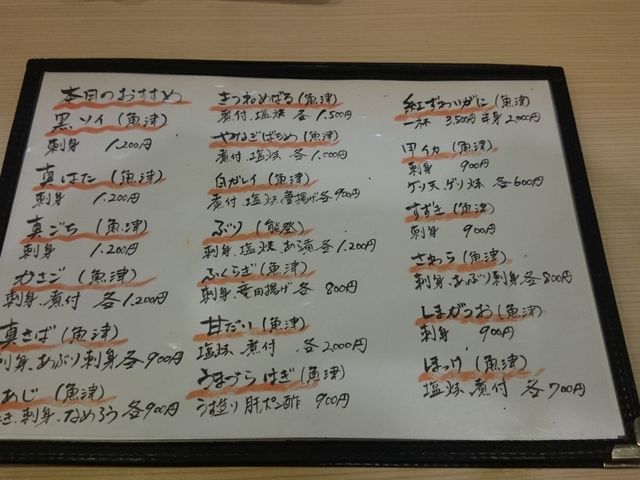 本日のおすすめ
黒ソイ (魚津)
刺身 1.200円
真はた (魚津)
刺身 1.200円
真ごち (魚津)
刺身 1.200円
カさご (魚津)
刺身、煮付 各1.200円
真さば (魚津)
刺身、あぶり刺身各900円
あじ (魚津)
き、刺身、なめろう 各900円
きつねめばる (魚津)
煮付、塩焼 各1.500円
やなぎばちめ (魚津)
煮付、塩焼 各1.000円
白ガレイ (魚津)
煮付、塩焼、唐揚げ各900円
ぶり (能登)
刺身、塩焼、あら煮 各1.200円
ふくらぎ (魚津)
刺身、竜田揚げ 各 800円
甘だい (魚津)
塩焼、煮付 各2000円
うまづらはぎ (魚津)
うす造り 肝ポン酢 900円
紅ずわいがに (魚津)
一杯 3,500円 半身 2,000円
甲イカ (魚津)
刺身 900円
ゲソ天、ゲソ焼 各600円
すずき (魚津)
刺身 900円
さわら (魚津)
刺身、あぶり刺身各800円
しまがつお (魚津)
刺身 900円
ほっけ (魚津)
塩焼、煮付 各700円